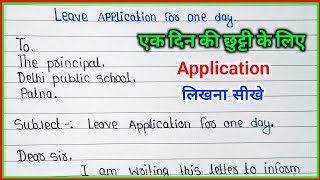 Leave Application for one day.
To.
The principal.
Delhi public school.
Patna.
Subject-: Leave Application for one day.
Dear sir.
I am writing this letter to inform
एक दिन की छुट्टी के लिए
Application
लिखना सीखे